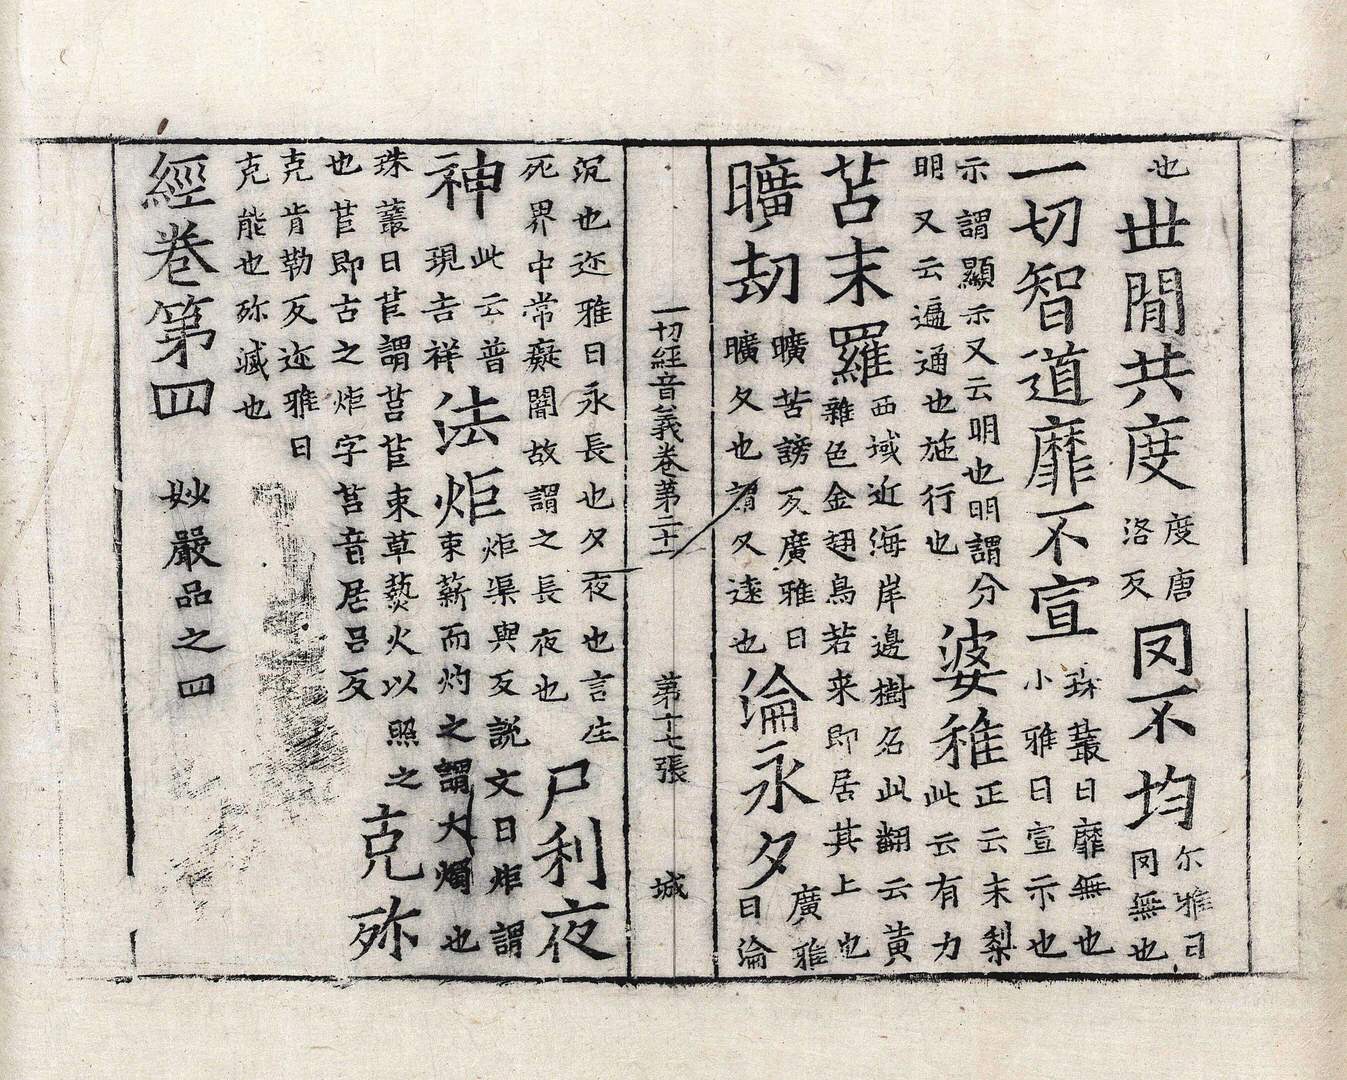 也世間共度度唐洛反罔不均尔雅曰罔無也
一切智道靡不宣珠叢曰靡無也小雅曰宣示也
示謂顯示又云明也明謂分明又云遍通也施行也婆稚正云末梨此云有力
苫末羅西域近海岸邊樹名此翻云黃雜色金翅鳥若来即居其上也
曠劫曠苦謗反廣雅曰曠久也謂久遠也淪永夕廣雅曰淪
一切經音義卷第二十一 第十七張 城
沉也迩雅曰永長也夕夜也言生死界中常癡闇故謂之長夜也尸利夜
神此云普現吉祥法炬炬渠與反説文曰炬謂束薪而灼之謂大燭也
珠叢曰苣謂莒苣束草爇火以照之也苣即古之炬字莒音居呂反克殄
克肯勒反迩雅曰克能也殄滅也
經卷第四 妙嚴品之四